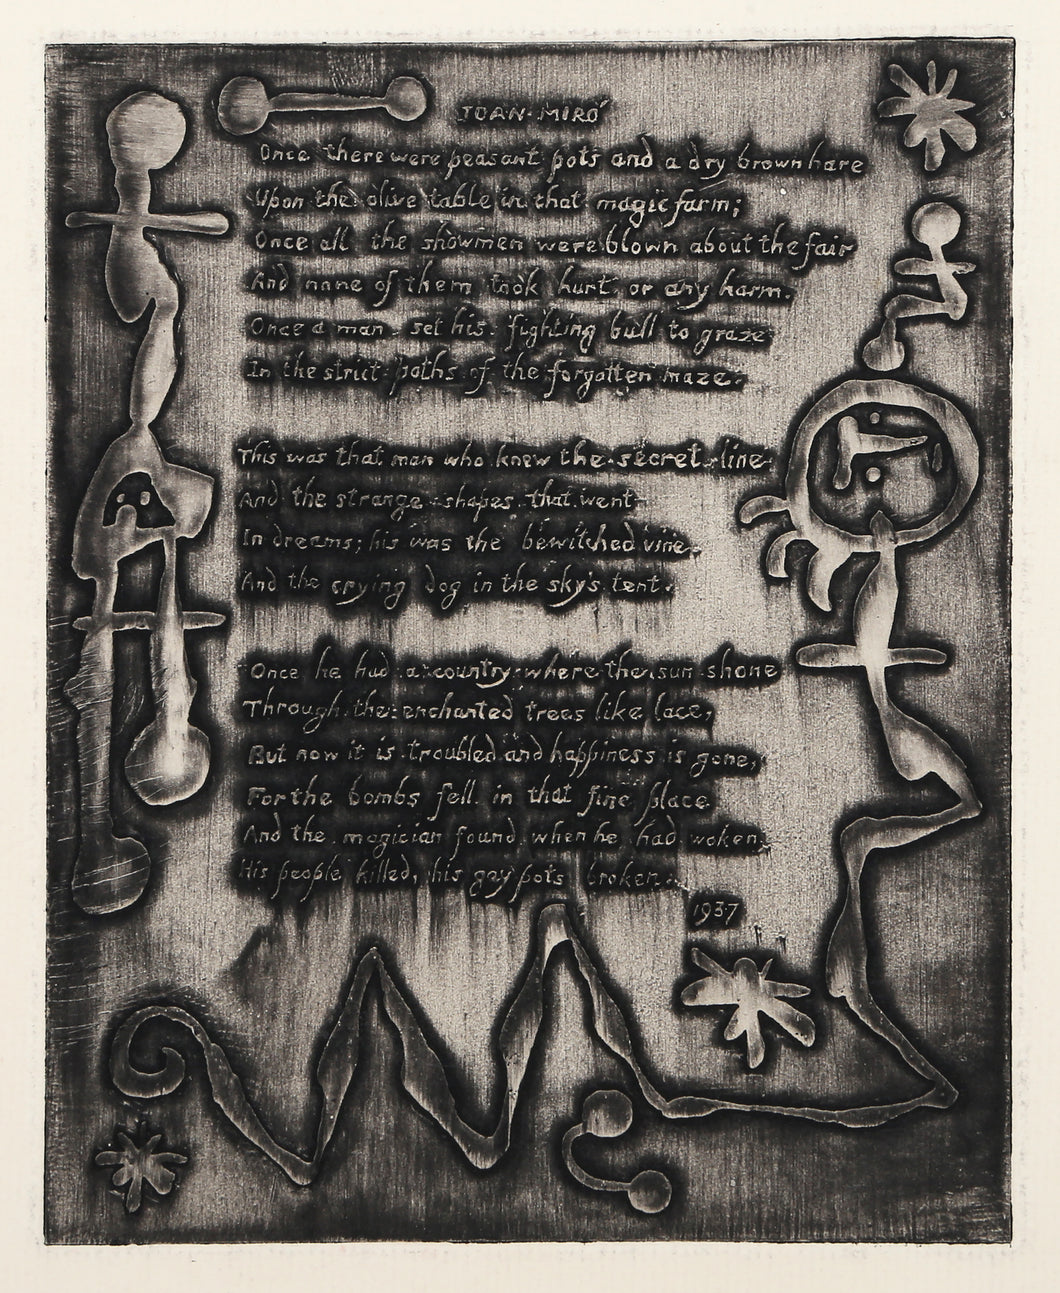 JOAN·MIRÓ
Once there were peasant pots and a dry brown hare
Upon the olive table in that magic farm;
Once all the showmen were blown about the fair
And none of them took hurt or any harm.
Once a man set his fighting bull to graze
In the strict paths of the forgotten maze.
This was that man who knew the secret line
And the strange shapes that went
In dreams; his was the bewitched vine
And the crying dog in the sky's tent.
Once he had a country where the sun shone
Through the enchanted trees like lace,
But now it is troubled and happiness is gone,
For the bombs fell in that fine place
And the magician found when he had woken
His people killed, his gay pots broken.
1937